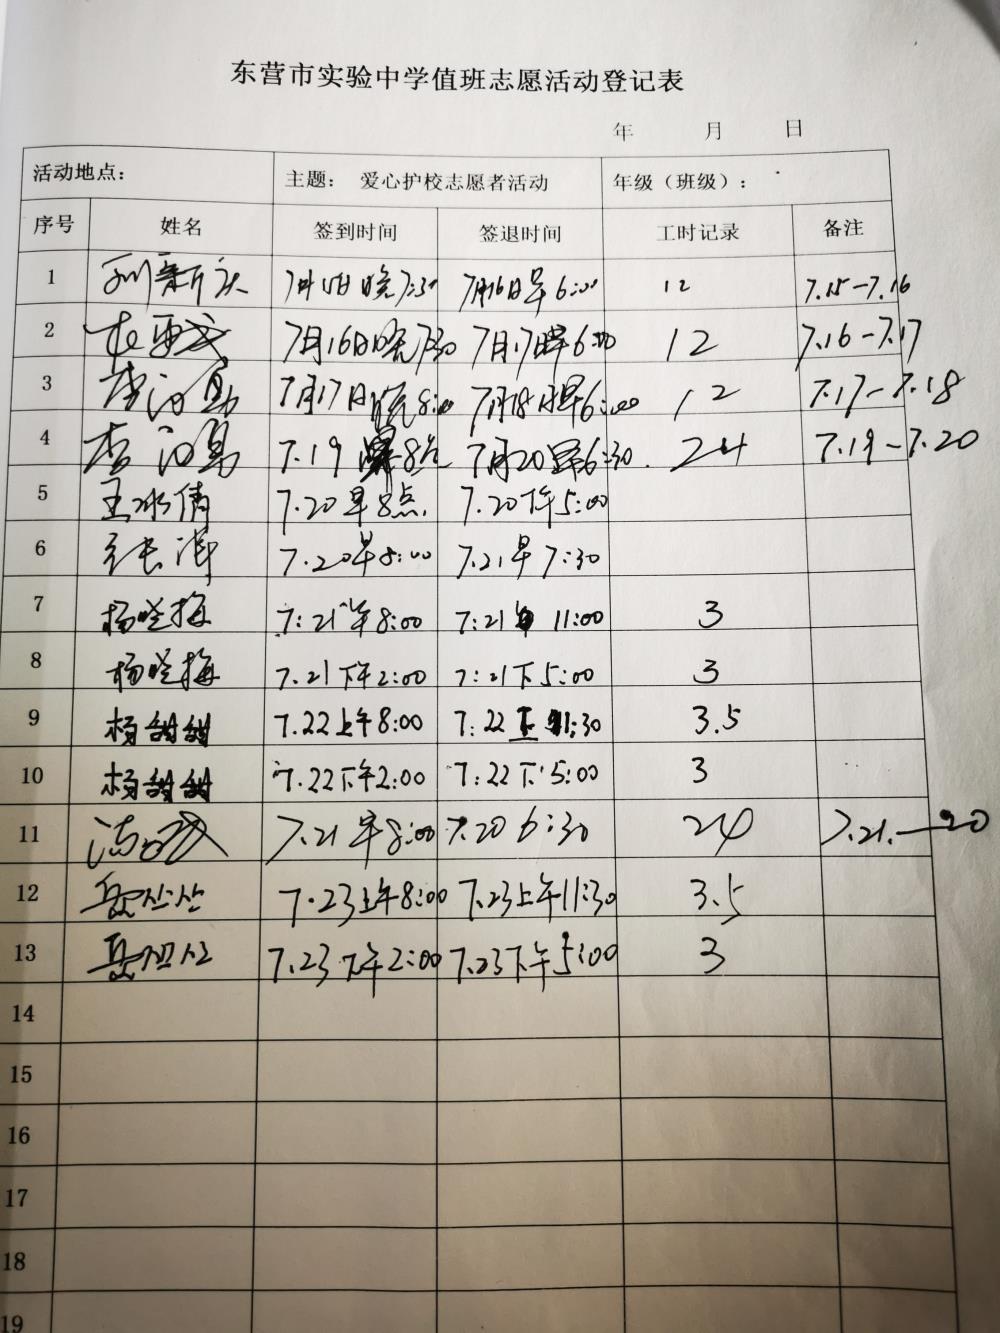 东营市实验中学值班志愿活动登记表
年 月 日
活动地点： 主题： 爱心护校志愿者活动 年级（班级）：
序号 姓名 签到时间 签退时间 工时记录 备注
1 7月15日晚7:30 7月16日早6:00 12 7.15-7.16
2 7月16日晚7:30 7月17日早6:30 12 7.16-7.17
3 7月17日晚8:00 7月18日早6:00 12 7.17-7.18
4 7.19早8点 7月20早6:30. 24 7.19-7.20
5 王冰倩 7.20早8点. 7.20下午5:00
6 张涛 7.20早8:00 7.21早7:30
7 杨晓梅 7:21上午8:00 7:21 11:00 3
8 杨晓梅 7.21下午2:00 7:21下5:00 3
9 杨甜甜 7.22上午8:00 7:22上 11:30 3.5
10 杨甜甜 7.22下午2:00 7:22下5:00 3
11 7.21早8:00 7.20 6:30 24 7.21.—20
12 7.23上午8:00 7.23上午11:30 3.5
13 7.23下午2:00 7.23下午5:00 3
14
15
16
17
18
19